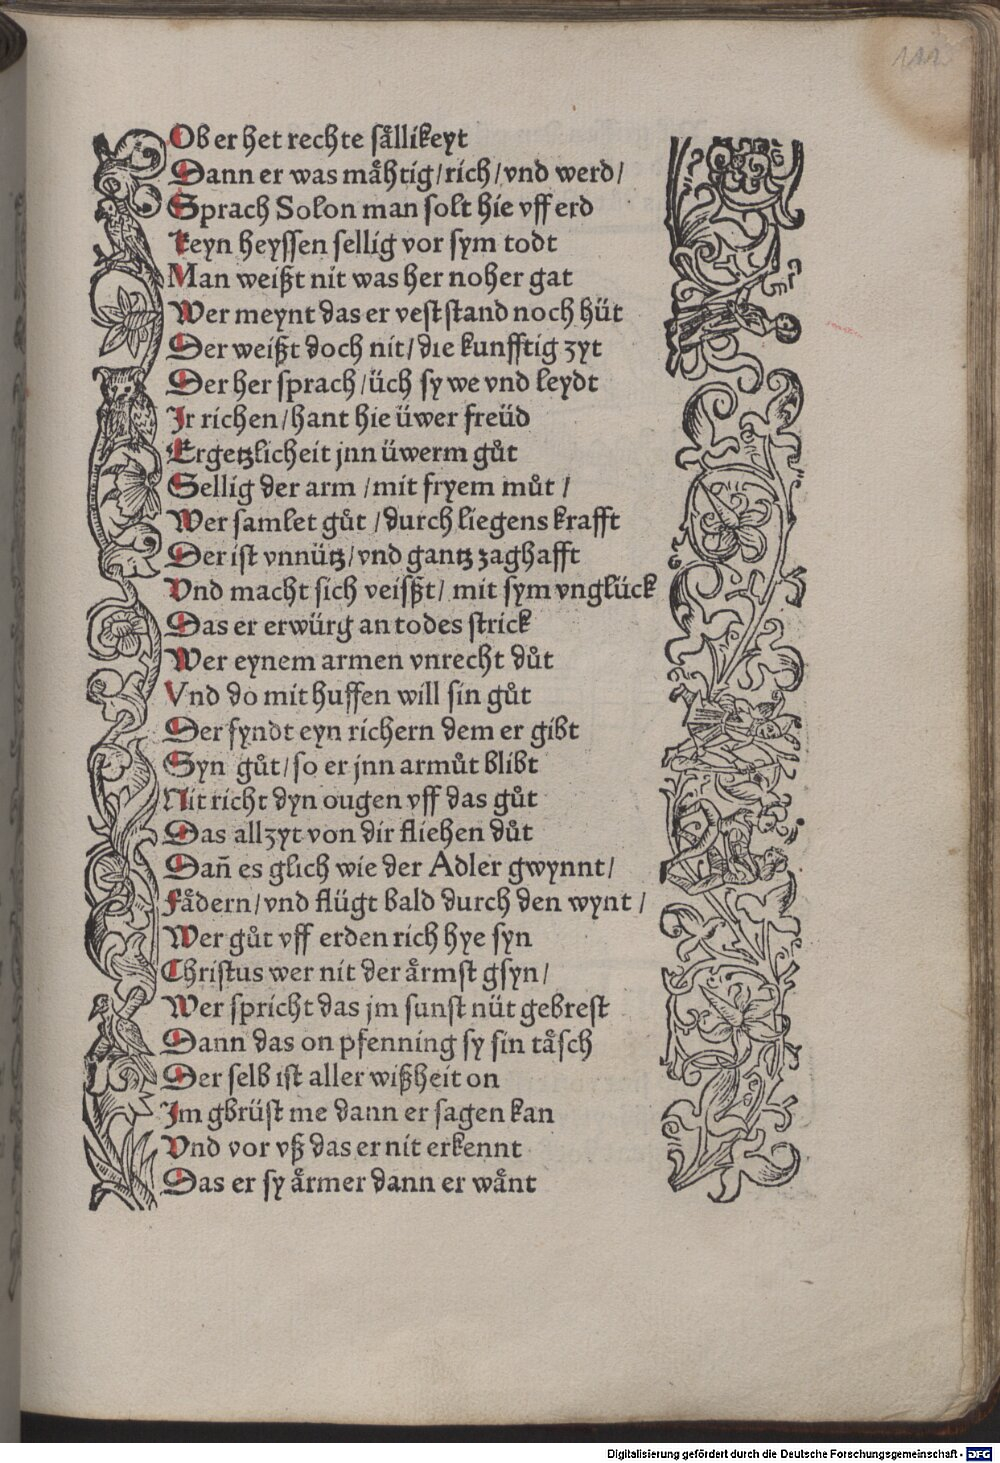 111
Ob er het rechte sållikeyt
Dann er was måhtig/rich/vnd werd/
Sprach Solon man solt hie vff erd
keyn heyssen sellig vor sym todt
Man weißt nit was her noher gat
Wer meynt das er vest stand noch hüt
Der weißt doch nit/die kunfftig zyt
Der her sprach/üch sy we vnd leydt
Ir richen/hant hie üwer freüd
Ergetzlicheit jnn üwerm gůt
Sellig der arm/mit fryem můt/
Wer samlet gůt/durch liegens krafft
Der ist vnnütz/vnd gantz zaghafft
Vnd macht sich veisßt/mit sym vnglück
Das er erwürg an todes strick
Wer eynem armen vnrecht důt
Vnd do mit huffen will sin gůt
Der fyndt eyn richern dem er gibt
Syn gůt/so er jnn armůt blibt
Nit richt dyn ougen vff das gůt
Das allzyt von dir fliehen důt
Dan̄ es glich wie der Adler gwynnt/
Fådern/vnd flügt bald durch den wynt/
Wer gůt vff erden rich hye syn
Christus wer nit der årmst gsyn/
Wer spricht das jm sunst nüt gebrest
Dann das on pfenning sy sin tåsch
Der selb ist aller wißheit on
Im gbrüst me dann er sagen kan
Vnd vor vß das er nit erkennt
Das er sy årmer dann er wånt
Digitalisierung gefördert durch die Deutsche Forschungsgemeinschaft - DFG